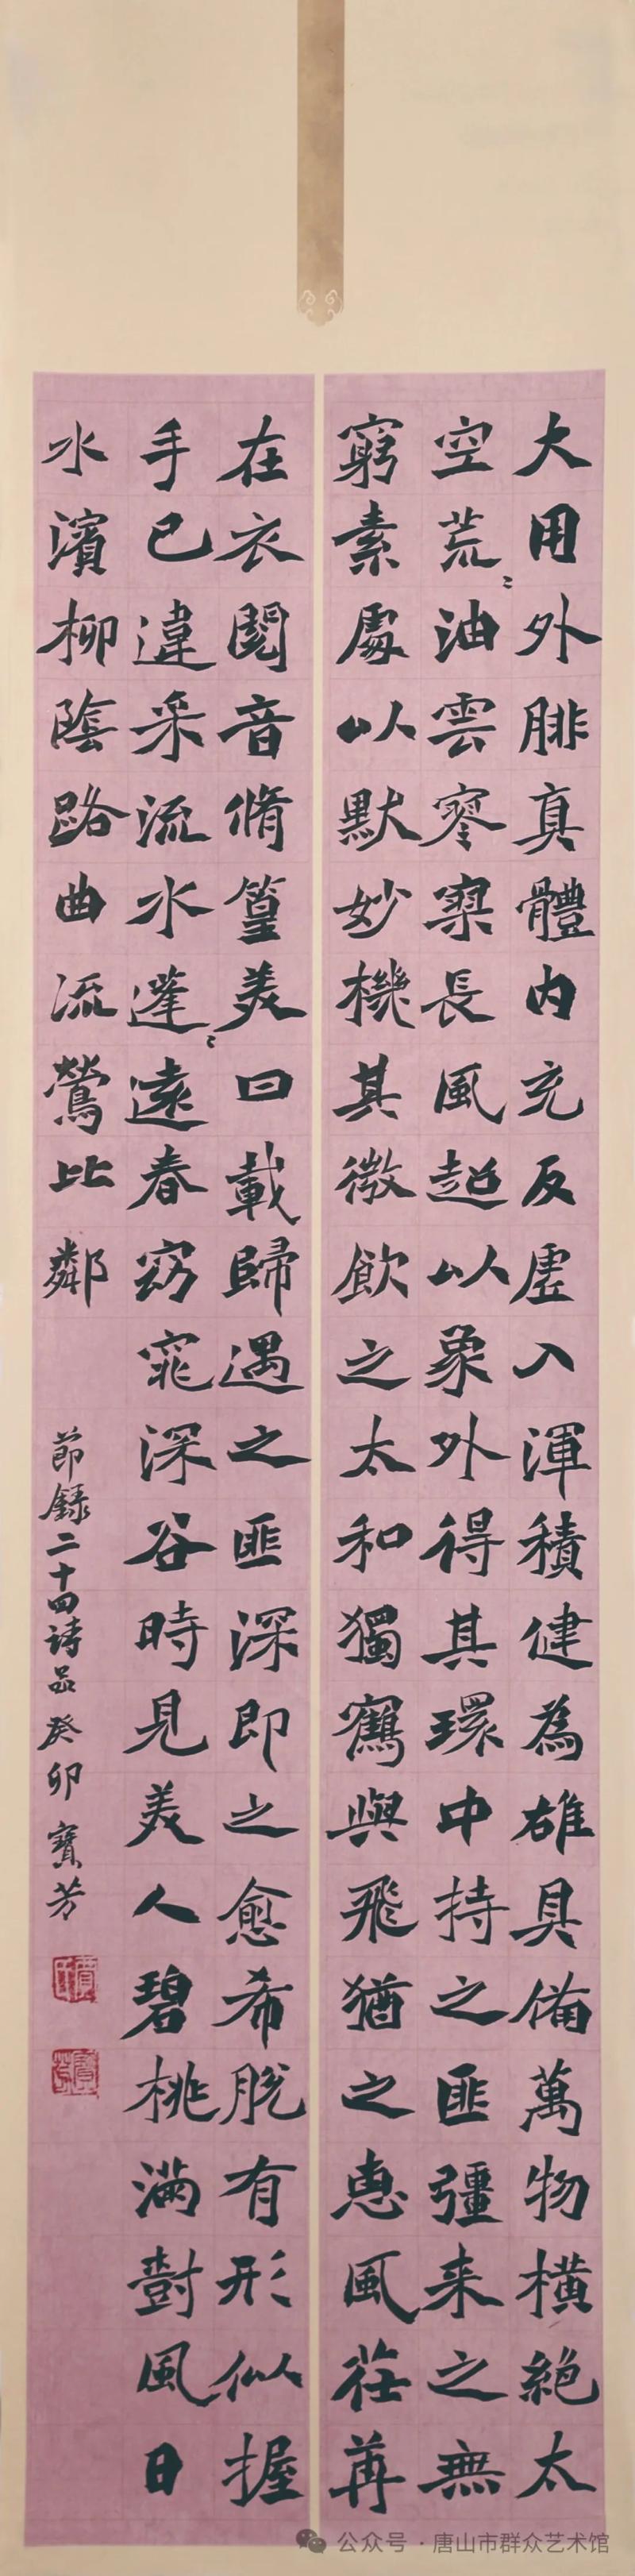 大用外腓真體内充反虛入渾積健為雄具備萬物橫絕太
空荒〻油雲寥寥長風超以象外得其環中持之匪彊来之無
窮素處以默妙機其微飲之太和獨鶴與飛猶之惠風荏苒
在衣閱音脩篁美曰載歸遇之匪深即之愈希脫有形似握
手已違采流水蓬〻遠春窈窕深谷時見美人碧桃滿樹風日
水濱柳陰路曲流鶯比鄰
節錄二十四詩品癸卯寶芳
公众号·唐山市群众艺术馆